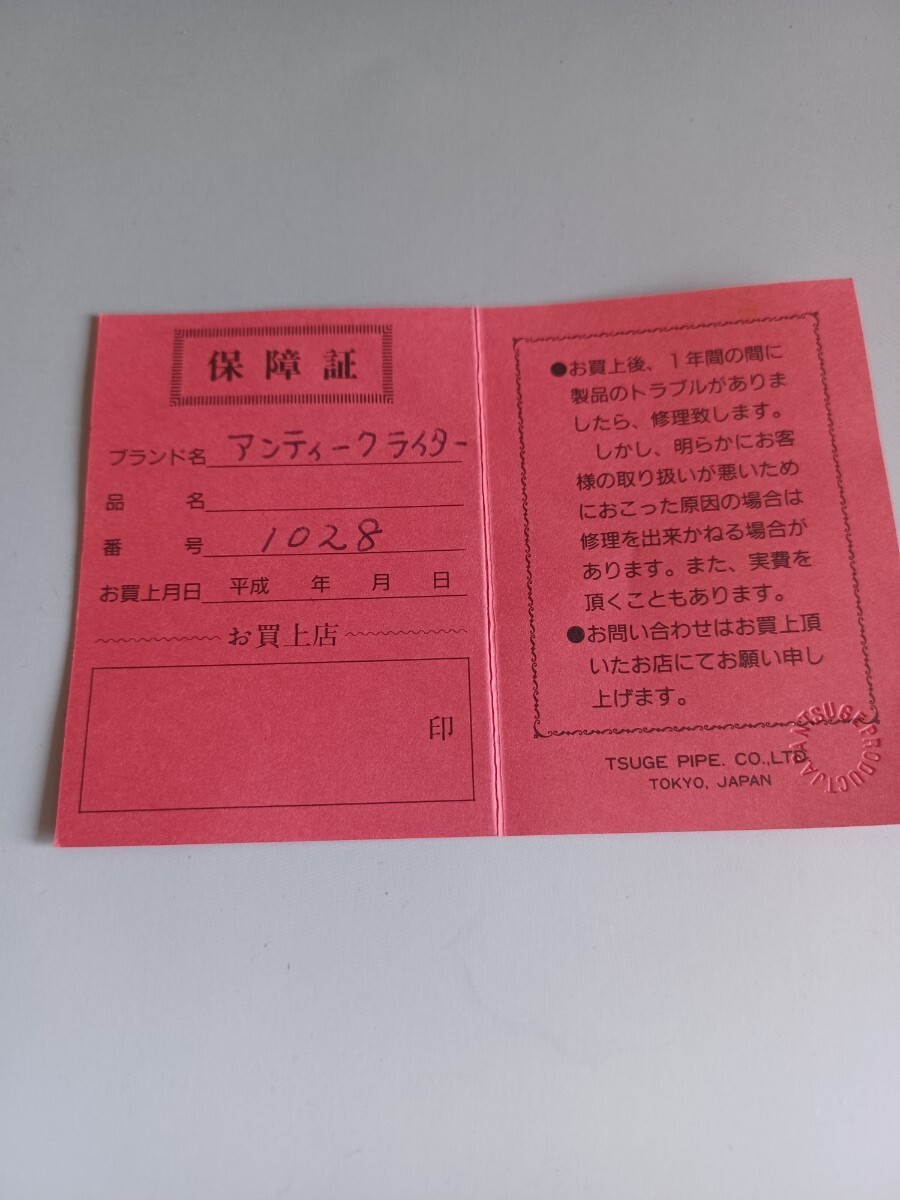 保障証
ブランド名 アンティークライター
品名
番号 1028
お買上月日 平成 年 月 日
お買上店
印
●お買上後、1年間の間に
製品のトラブルがありま
したら、修理致します。
しかし、明らかにお客
様の取り扱いが悪いため
におこった原因の場合は
修理を出来かねる場合が
あります。また、実費を
頂くこともあります。
●お問い合わせはお買上頂
いたお店にてお願い申し
上げます。
TSUGE PIPE. CO.,LTD
TOKYO, JAPAN
TSUGE PRODUCT JAPAN